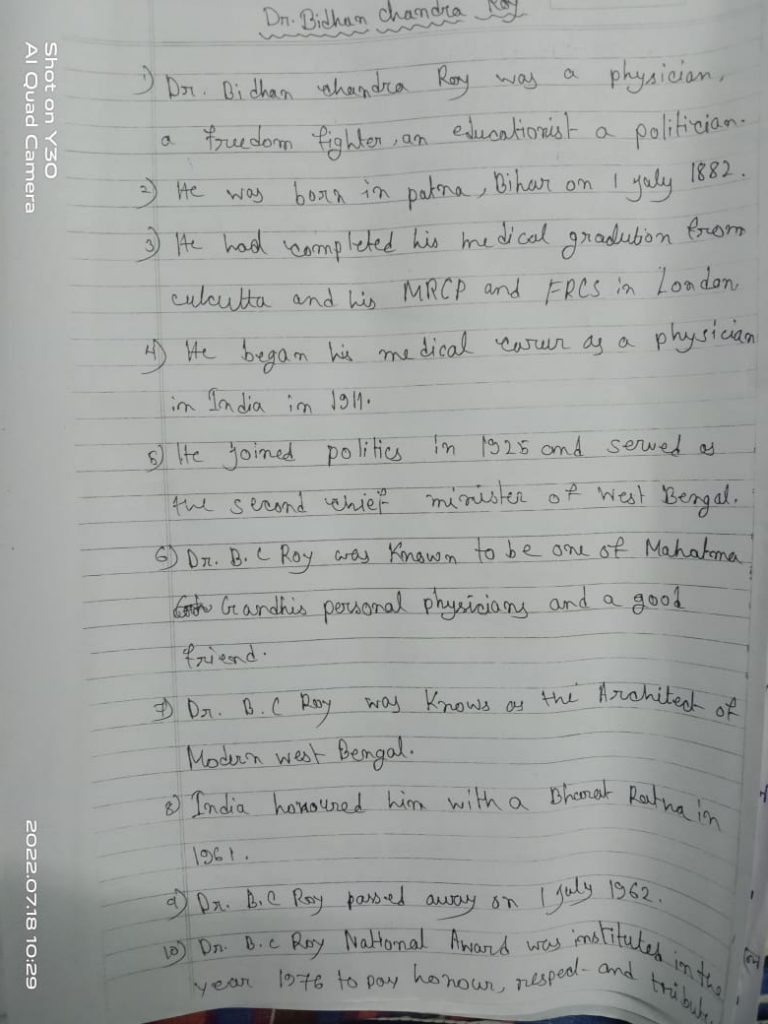 Dr. Bidhan chandra Roy
1) Dr. Bidhan chandra Roy was a physician,
a freedom fighter, an educationist a politician.
2) He was born in patna, Bihar on 1 yaly 1882.
3) He had completed his medical gradution from
culcutta and his MRCP and FRCS in London
4) He began his medical careur as a physician
in India in 1911.
5) He joined politics in 1925 and served as
the second chief minister of west Bengal.
6) Dr. B. C Roy was Known to be one of Mahatma
Gandhis personal physicians and a good
friend.
7) Dr. B. C Roy was Knows as the Architect of
Modern west Bengal.
8) India honoured him with a Bharat Ratna in
1961.
9) Dr. B.C Roy passed away on 1 July 1962.
10) Dr. B.C Roy National Award was institutes in the
year 1976 to pay honour, respect and tribute
Shot on Y30
AI Quad Camera
2022.07.18 10:29